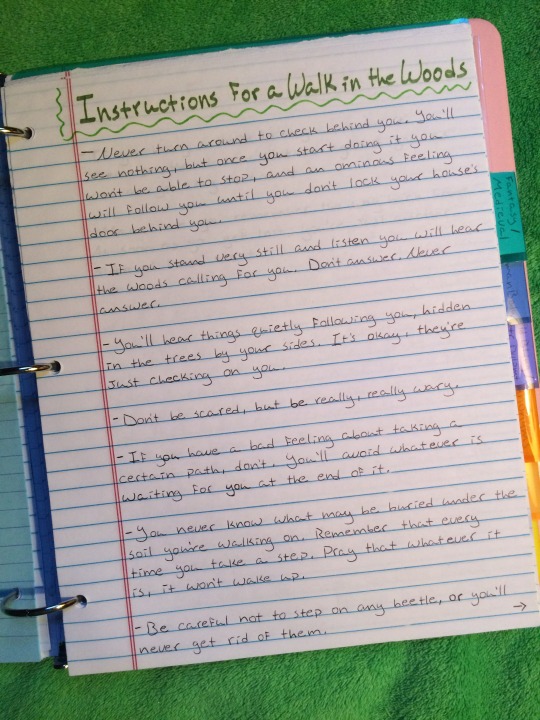 Instructions For a Walk in the Woods
- Never turn around to check behind you. You'll
see nothing, but once you start doing it you
won't be able to stop, and an ominous feeling
will follow you until you don't lock your house's
door behind you.
- If you stand very still and listen you will hear
the woods calling for you. Don't answer. Never
answer.
- You'll hear things quietly following you, hidden
in the trees by your sides. It's okay, they're
just checking on you.
- Don't be scared, but be really, really wary.
- If you have a bad feeling about taking a
certain path, don't. You'll avoid whatever is
waiting for you at the end of it.
- You never know what may be buried under the
soil you're walking on. Remember that every
time you take a step. Pray that whatever it
is, it won't wake up.
- Be careful not to step on any beetle, or you'll
never get rid of them. →
Fantasy/
Medieval